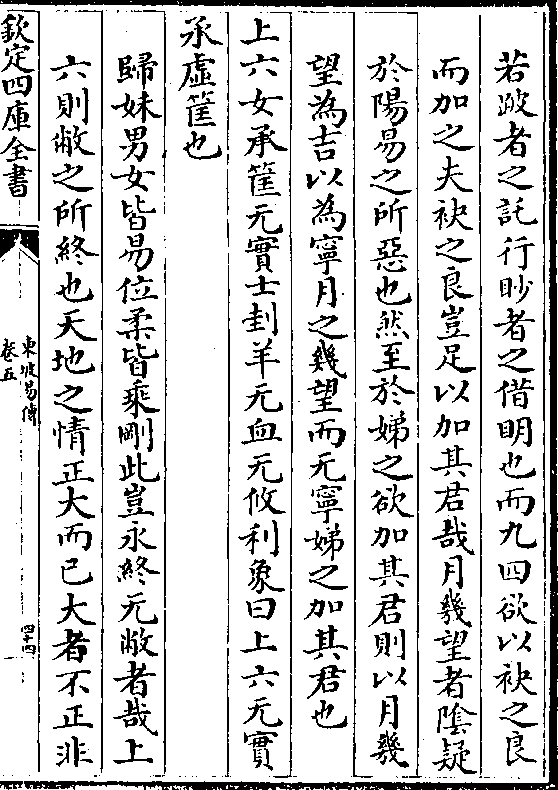 若跛者之託行眇者之借明也而九四欲以袂之良
而加之夫袂之良豈足以加其君哉月幾望者陰疑
於陽易之所惡也然至於娣之欲加其君則以月幾
望為吉以為寧月之幾望而无寧娣之加其君也
上六女承筐无實士刲羊无血无攸利象曰上六无實
承虛筐也
歸妹男女皆易位柔皆乘剛此豈永終无敝者哉上
六則敝之所終也天地之情正大而已大者不正非
欽定四庫全書
東坡易傳
卷五
四十四